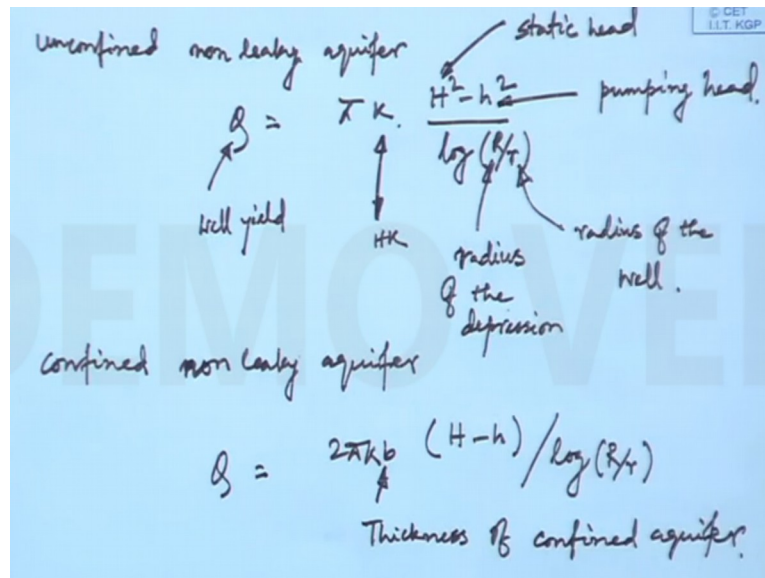 © CET
I.I.T. KGP
static head
unconfined non leaky aquifer
Q = πK. H²-h² / log (R/r)
pumping head.
well yield
HK
radius of the depression
radius of the well.
confined non leaky aquifer
Q = 2πKb (H-h) / log (R/r)
Thickness of confined aquifer.
DEMO VE